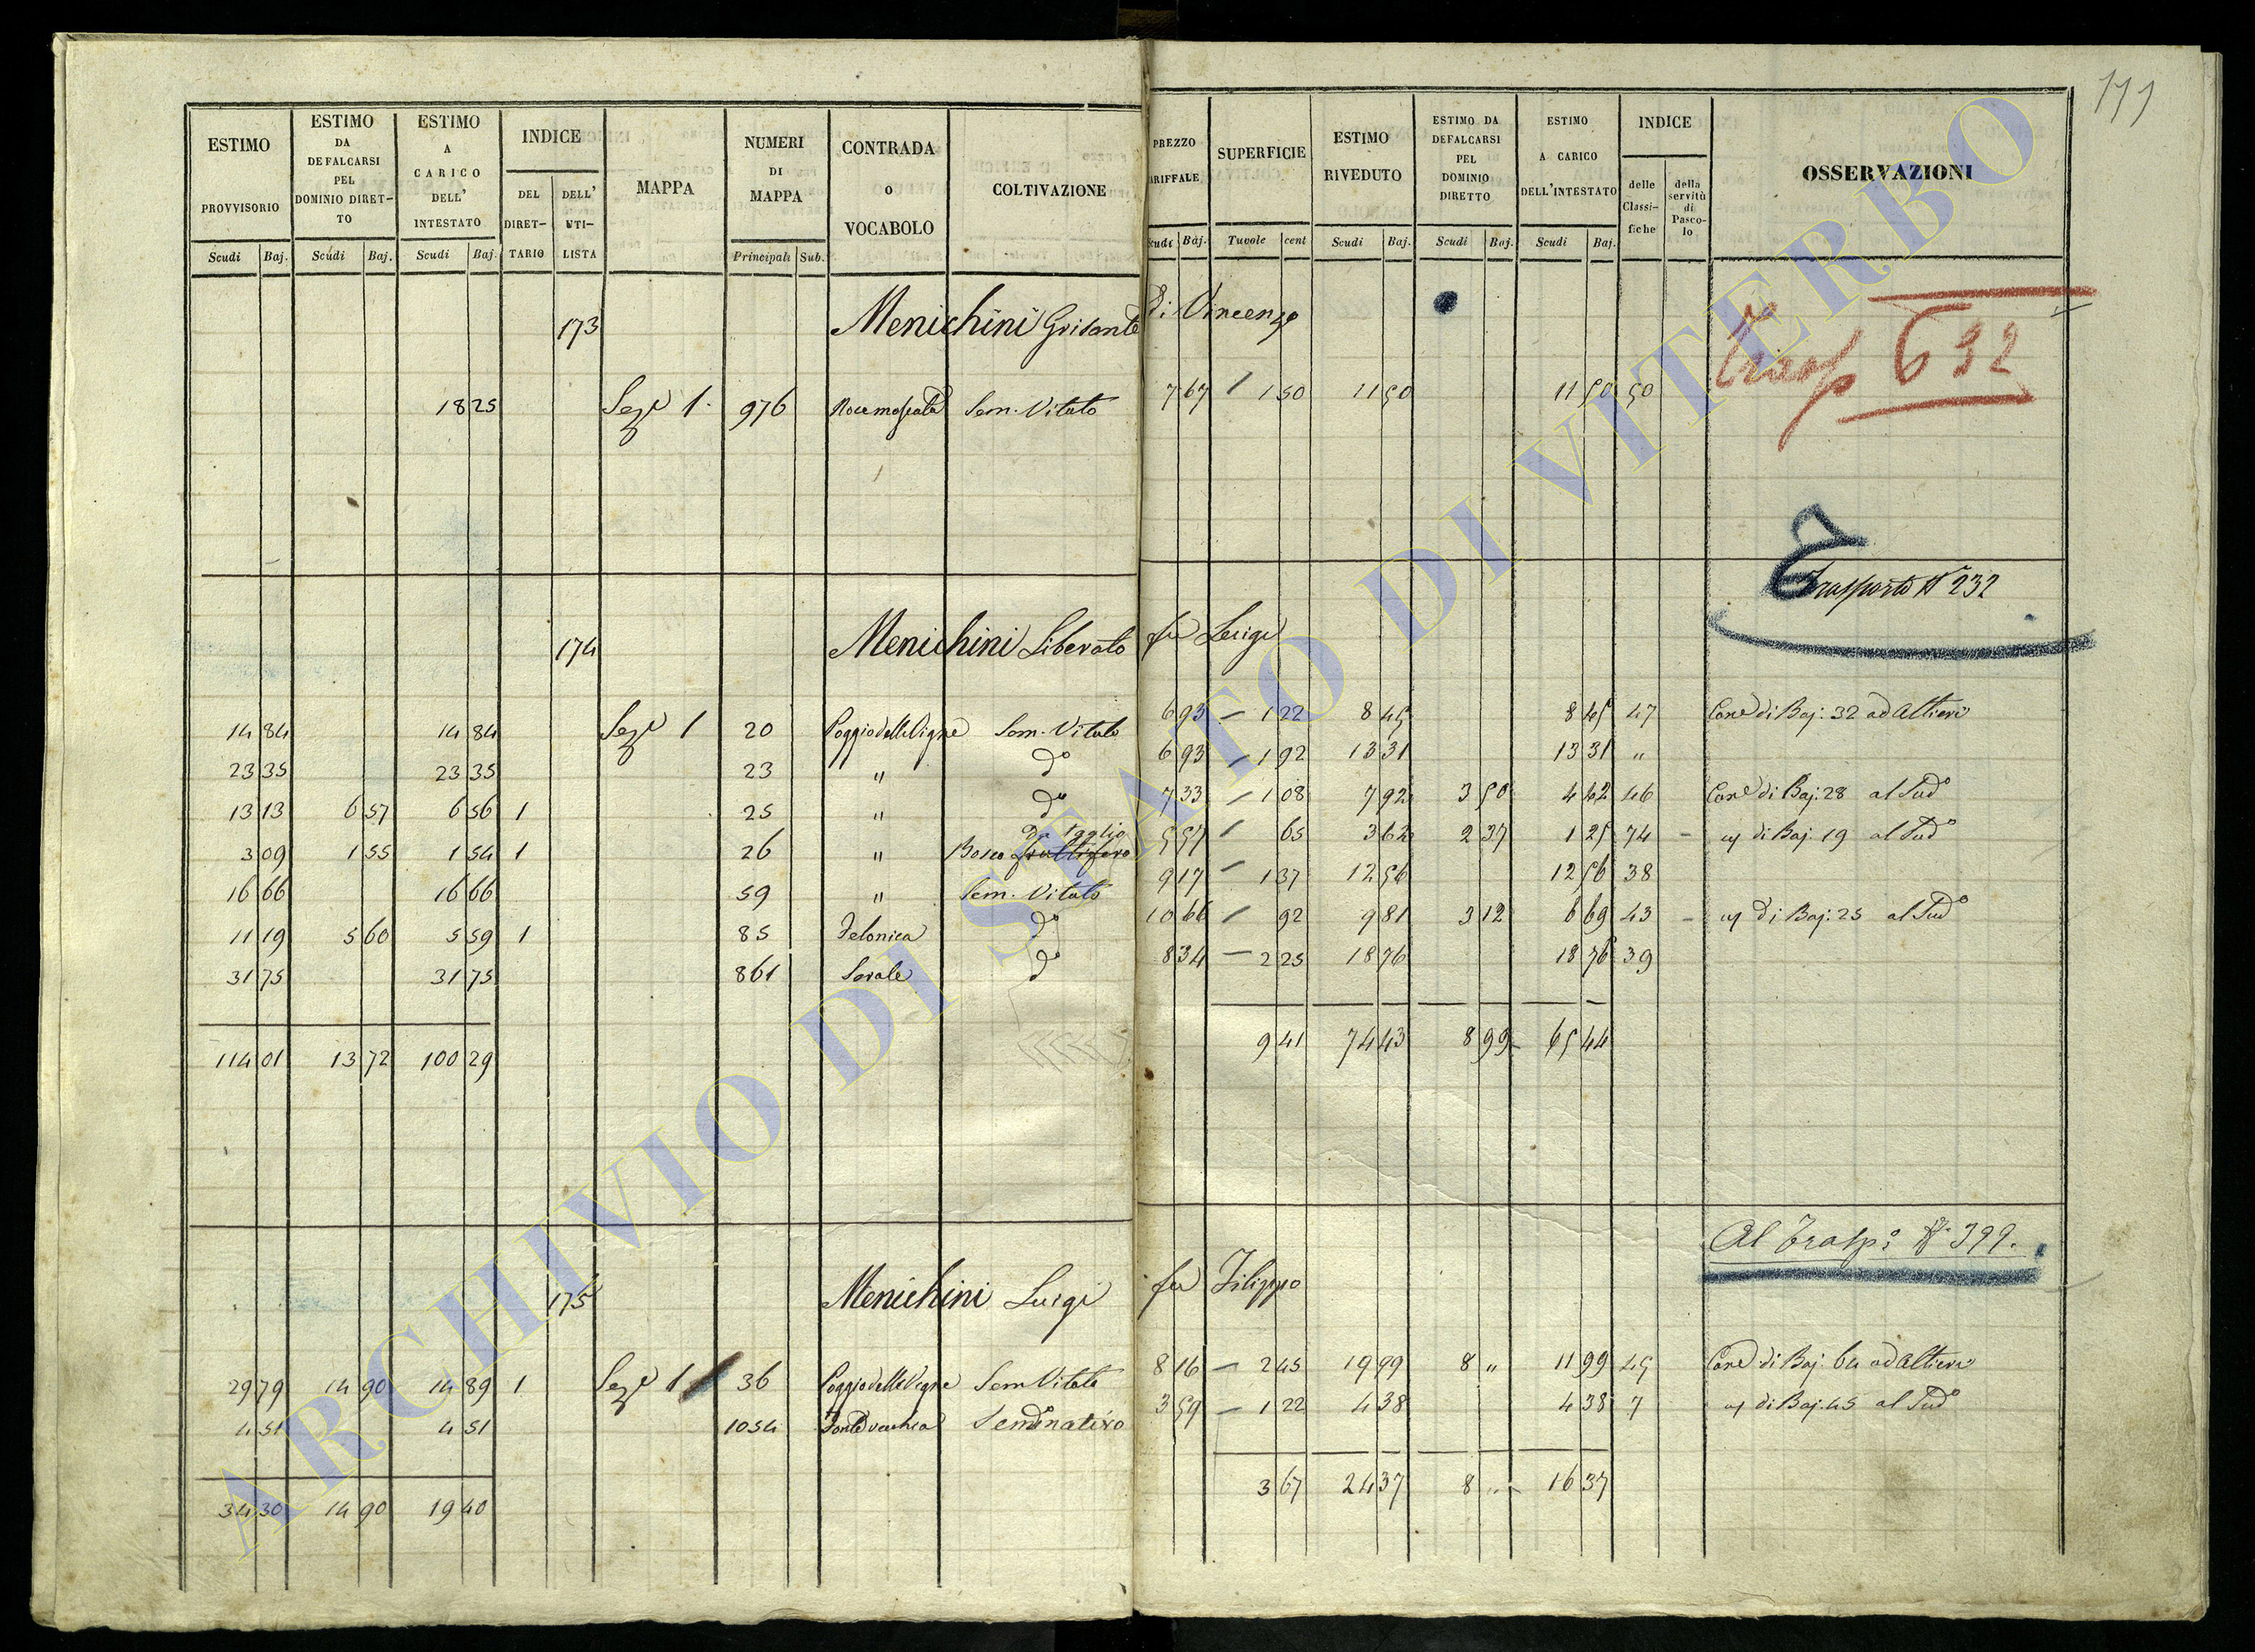 177
ESTIMO PROVVISORIO
ESTIMO DA DEFALCARSI PEL DOMINIO DIRET-TO
ESTIMO A CARICO DELL' INTESTATO
INDICE
DEL DIRET-TARIO
DELL' UTI-LISTA
MAPPA
NUMERI DI MAPPA
CONTRADA O VOCABOLO
COLTIVAZIONE
PREZZO ARIFFALE
SUPERFICIE
ESTIMO RIVEDUTO
ESTIMO DA DEFALCARSI PEL DOMINIO DIRETTO
ESTIMO A CARICO DELL'INTESTATO
INDICE
delle Classi-fiche
della servitù di Pasco-lo
OSSERVAZIONI
Scudi Baj. Scudi Baj. Scudi Baj. Principali Sub. Scudi Baj. Tavole cent Scudi Baj. Scudi Baj. Scudi Baj.
173 Menichini Grisante di Vincenzo
Trasp 632
18 25 Sez.e 1. 976 Sem. Vitato 7 67 / 1 50 11 50 11 50 50
Trasporto N 232
174 Menichini Liberato fu Luigi
14 84 14 84 Sez.e 1 20 Poggio delle Vigne Sem. Vitato 6 93 – 1 22 8 45 8 45 47 Cone di Baj. 32 ad Altieri
23 35 23 35 23 " do 6 93 – 1 92 13 31 13 31 "
13 13 6 57 6 56 1 25 " do 7 33 – 1 08 7 92 3 50 4 42 46 Cone di Baj. 28 al Sudo
3 09 1 55 1 54 1 26 " Bosco fruttifero da Taglio 5 57 / 65 3 62 2 37 1 25 74 – di Baj. 19 al Sudo
16 66 16 66 59 " Sem. Vitato 9 17 – 1 37 12 56 12 56 38
11 19 5 60 5 59 1 85 Felonica do 10 66 / 92 9 81 3 12 6 69 43 – di Baj. 25 al Sudo
31 75 31 75 861 Sorale do 8 34 – 2 25 18 76 18 76 39
114 01 13 72 100 29 9 41 74 43 8 99 65 44
Al Traspo N. 399.
175 Menichini Luigi fu Filippo
29 79 14 90 14 89 1 Sez.e 1 36 Poggio delle Vigne Sem Vitato 8 16 – 2 45 19 99 8 " 11 99 45 Cone di Baj. 64 ad Altieri
4 51 4 51 1054 Fonte vecchia Seminativo 3 59 – 1 22 4 38 4 38 7 di Baj. 45 al Sudo
34 30 14 90 19 40 3 67 24 37 8 " 16 37
ARCHIVIO DI STATO DI VITERBO